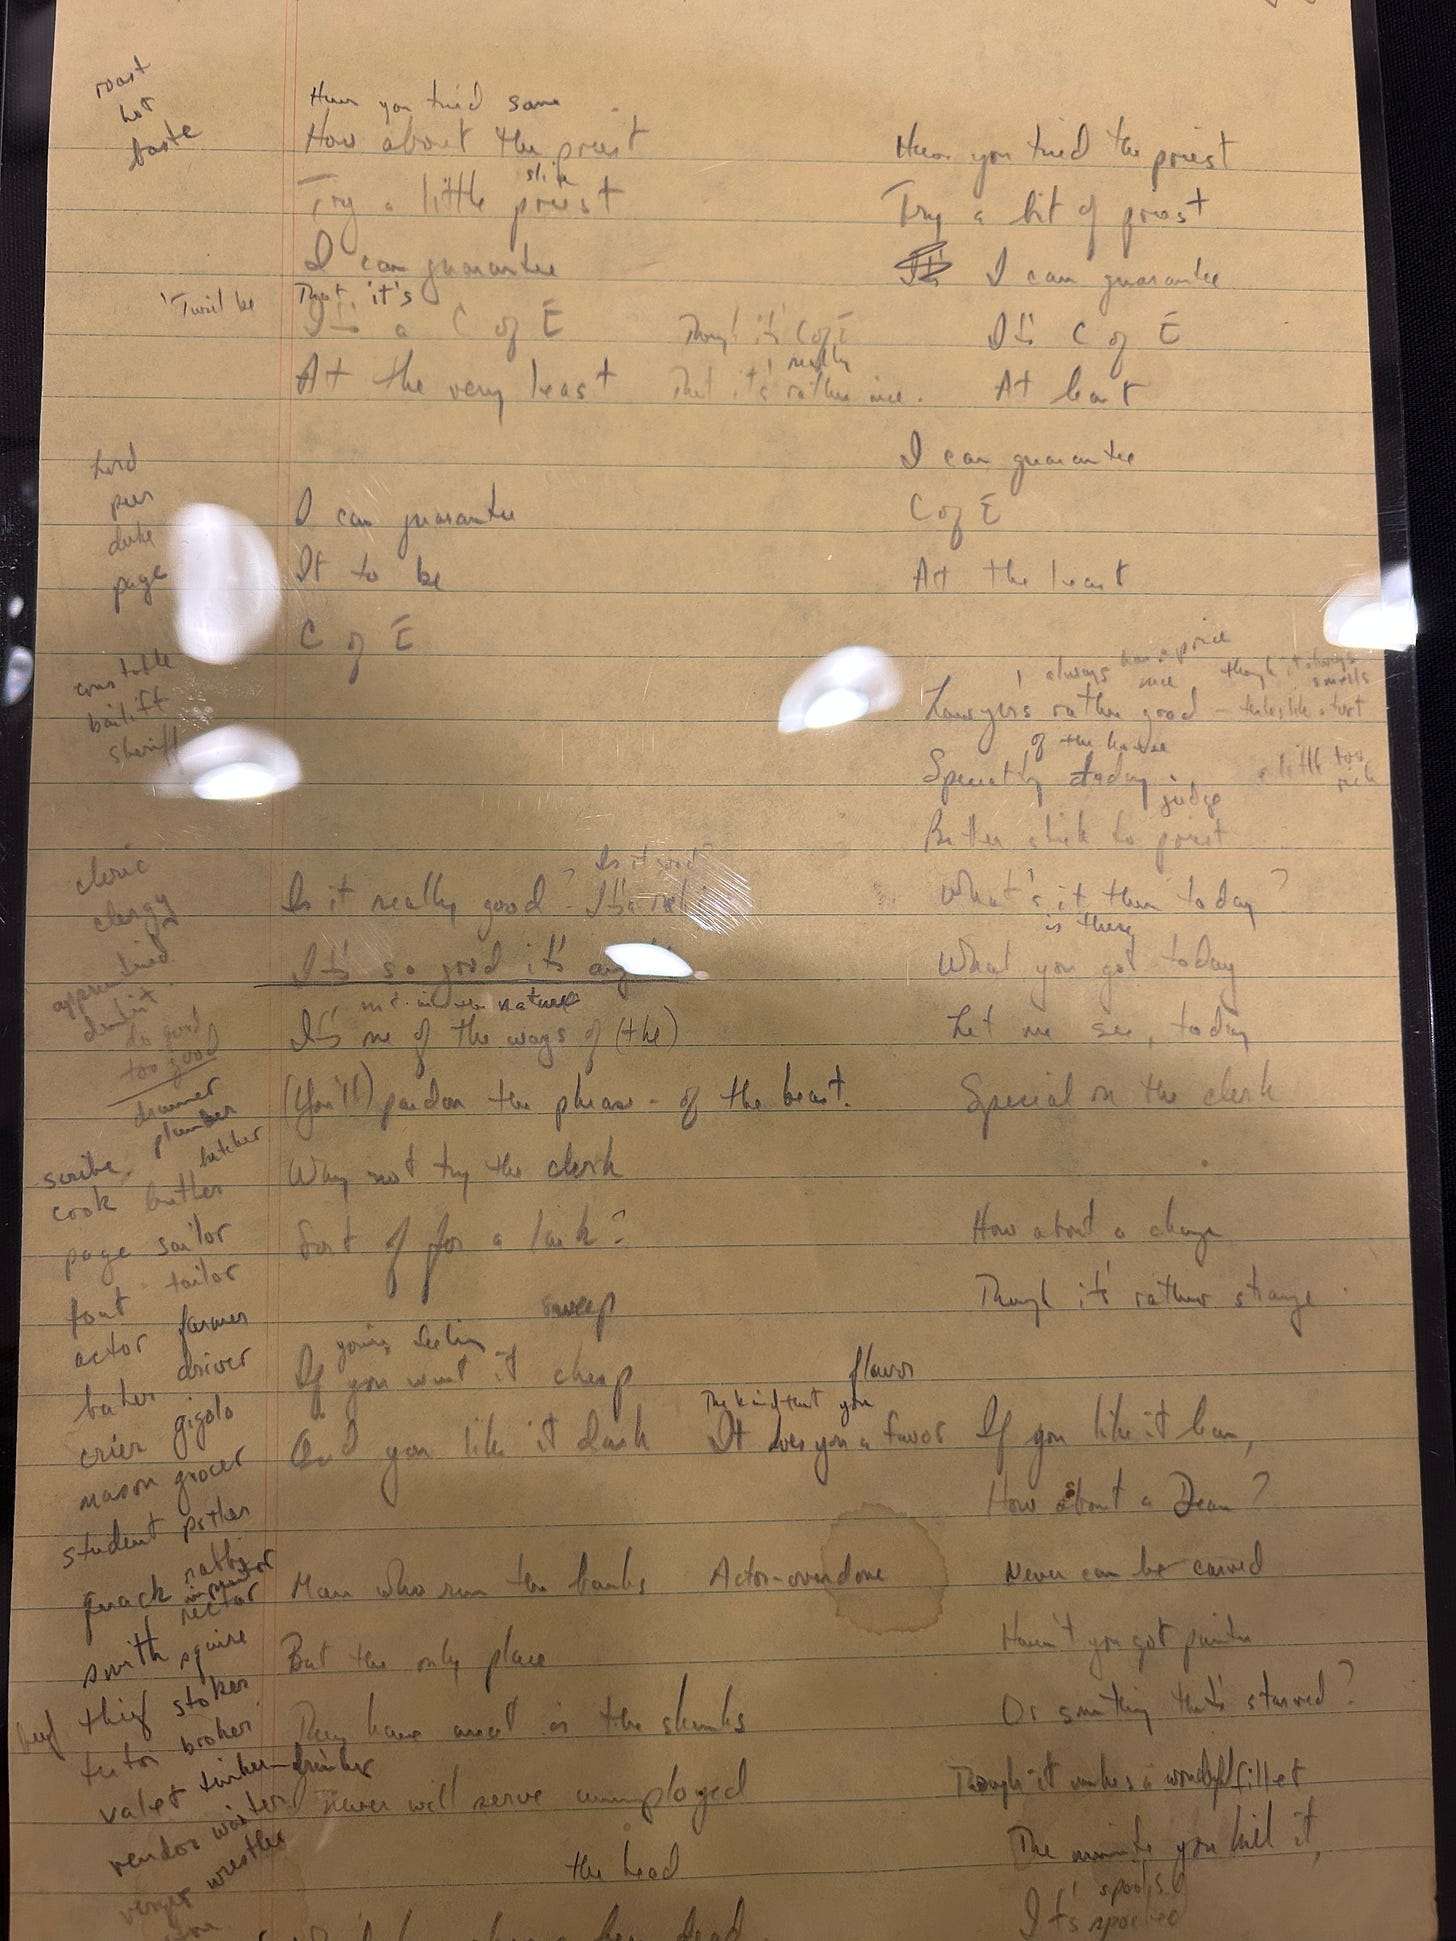 roast
hot
baste
Have you tried some
How about the priest
slice
Try a little priest
I can guarantee
'Twill be
That it's
It's a C of E
At the very least
Though it's C of E
really
That it's rather nice.
Have you tried the priest
Try a bit of priest
I can guarantee
It's C of E
At least
I can guarantee
C of E
At the least
lord
peer
duke
page
I can guarantee
It to be
C of E
constable
bailiff
sheriff
always have a price
nice
though it always
smells
Lawyer's rather good
of the house
Specialty today
a little too
rich
judge
Better stick to priest
What's it then today?
is there
What you got today
Let me see, today
Special on the clerk
cleric
clergy
do good
too good
Is it good?
Is it really good?
It's so good it's
nature
It's one of the ways of (the)
(You'll) pardon the phrase - of the beast.
Why not try the clerk
Sort of for a lark?
How about a change
Though it's rather strange
sweep
you're feeling
If you want it cheap
And you like it dark
flavor
The kind that you
It does you a favor
If you like it lean,
How about a Dean?
drummer
plumber
butcher
scribe
cook butler
page sailor
tailor
actor farmer
baker driver
crier gigolo
mason grocer
student potter
rabbi
quack
rector
smith squire
thief stoker
tutor broker
valet tinker drinker
vendor waiter
verger wrestler
Man who run the banks
Actor-overdone
But the only place
They have meat is the shanks
I never will serve unemployed
the head
Never can be carved
Haven't you got
Or something that's starved?
Though it makes a wonderful fillet
The minute you kill it,
spoils
It's spoiled